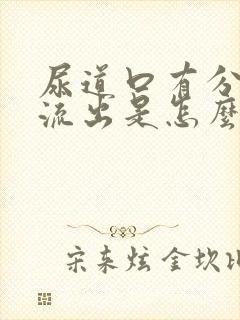 尿道口有分
流出是怎麽
宋来炫 金坎比